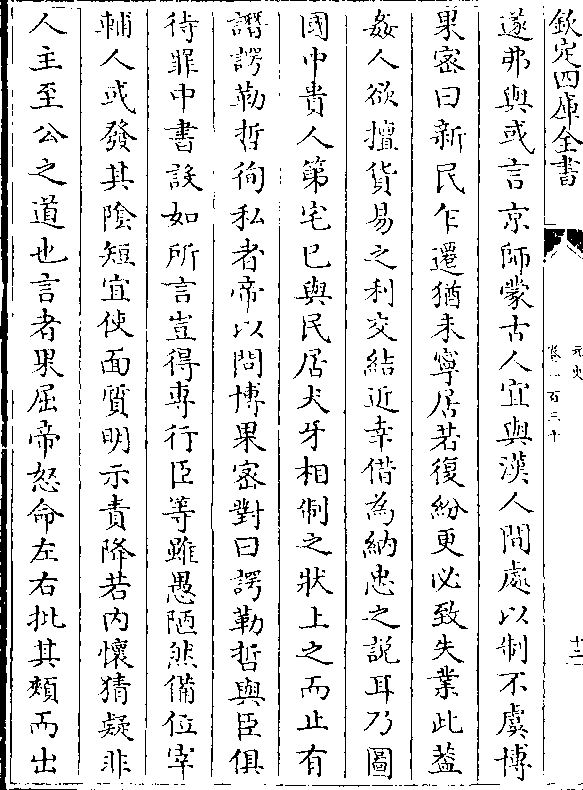 欽定四庫全書
元史
卷一百三十
十二
遂弗與或言京師蒙古人宜與漢人間處以制不虞博
果密曰新民乍遷猶未寧居若復紛更必致失業此葢
姦人欲擅貨易之利交結近幸借為納忠之說耳乃圖
國中貴人第宅已與民居犬牙相制之狀上之而止有
譖諤勒哲徇私者帝以問博果密對曰諤勒哲與臣俱
待罪中書設如所言豈得専行臣等雖愚陋然備位宰
輔人或發其陰短宜使面質明示責降若内懷猜疑非
人主至公之道也言者果屈帝怒命左右批其頰而出